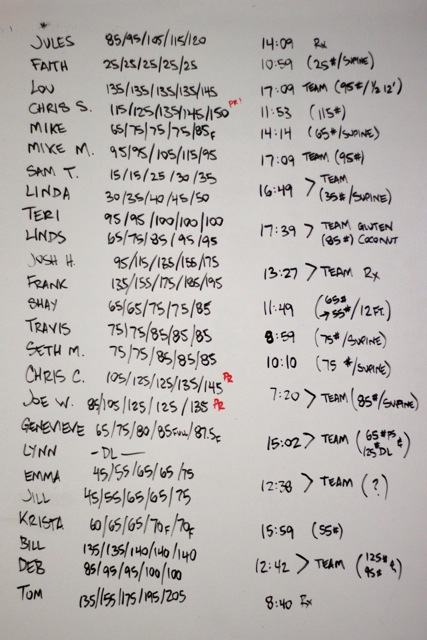 JULES 85/95/105/115/120 14:09 Rx
FAITH 25/25/25/25/25 10:59 (25#/SUPINE)
LOU 135/135/135/135/145 17:09 TEAM (95#/½ 12')
CHRIS S. 115/125/135/145/150 PR! 11:53 (115#)
MIKE 65/75/75/75/85F 14:14 (65#/SUPINE)
MIKE M. 95/95/105/115/95 17:09 TEAM (95#)
SAM T. 15/15/25/30/35
LINDA 30/35/40/45/50 16:49 > TEAM (35#/SUPINE)
TERI 95/95/100/100/100
LINDS 65/75/85/95/95 17:39 > TEAM GLUTEN (85#) COCONUT
JOSH H. 95/115/135/155/175
FRANK 135/155/175/185/195 13:27 > TEAM Rx
SHAY 65/65/75/75/85 11:49 (65# → 55#/12FT.)
TRAVIS 75/75/85/85/85 8:59 (75#/SUPINE)
SETH M. 75/75/85/85/85 10:10 (75#/SUPINE)
CHRIS C. 105/125/125/135/145 PR
JOE W. 85/105/125/125/135 PR 7:20 > TEAM (85#/SUPINE)
GENEVIEVE 65/75/80/85FULL/87.5F
LYNN -DL- 15:02 > TEAM (65# PS & 125# DL)
EMMA 45/55/65/65/75
JILL 45/55/65/65/75 12:38 > TEAM (?)
KRISTA 60/65/65/70F/70F 15:59 (55#)
BILL 135/135/140/140/140
DEB 85/95/95/100/100 12:42 > TEAM (125# & 95#)
TOM 135/155/175/195/205 8:40 Rx